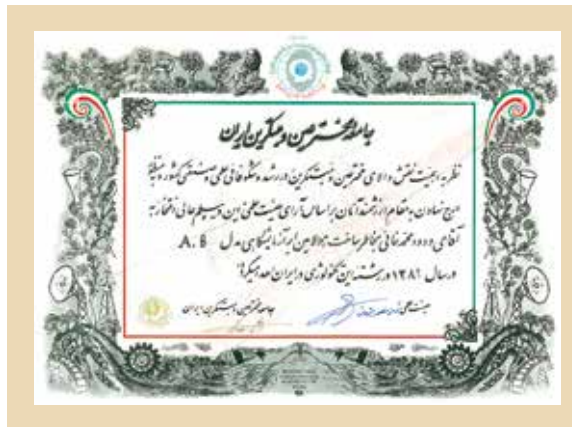 جامعه مخترعین و مبتکرین ایران
نظر به اهمیت نقش والای مخترعین و مبتکرین در رشد و شکوفائی علمی و صنعتی کشور و
ارج نهادن به مقام ارزشمند آنان بر اساس آرای هیئت علمی این دیپلم عالی افتخار به
آقای محمد خانی بخاطر ساخت آزمایشگاهی مدل A.B
در سال ۱۳۸۱ در رشته این تکنولوژی در ایران اهدا میگردد
هیئت علمی
جامعه مخترعین و مبتکرین ایران